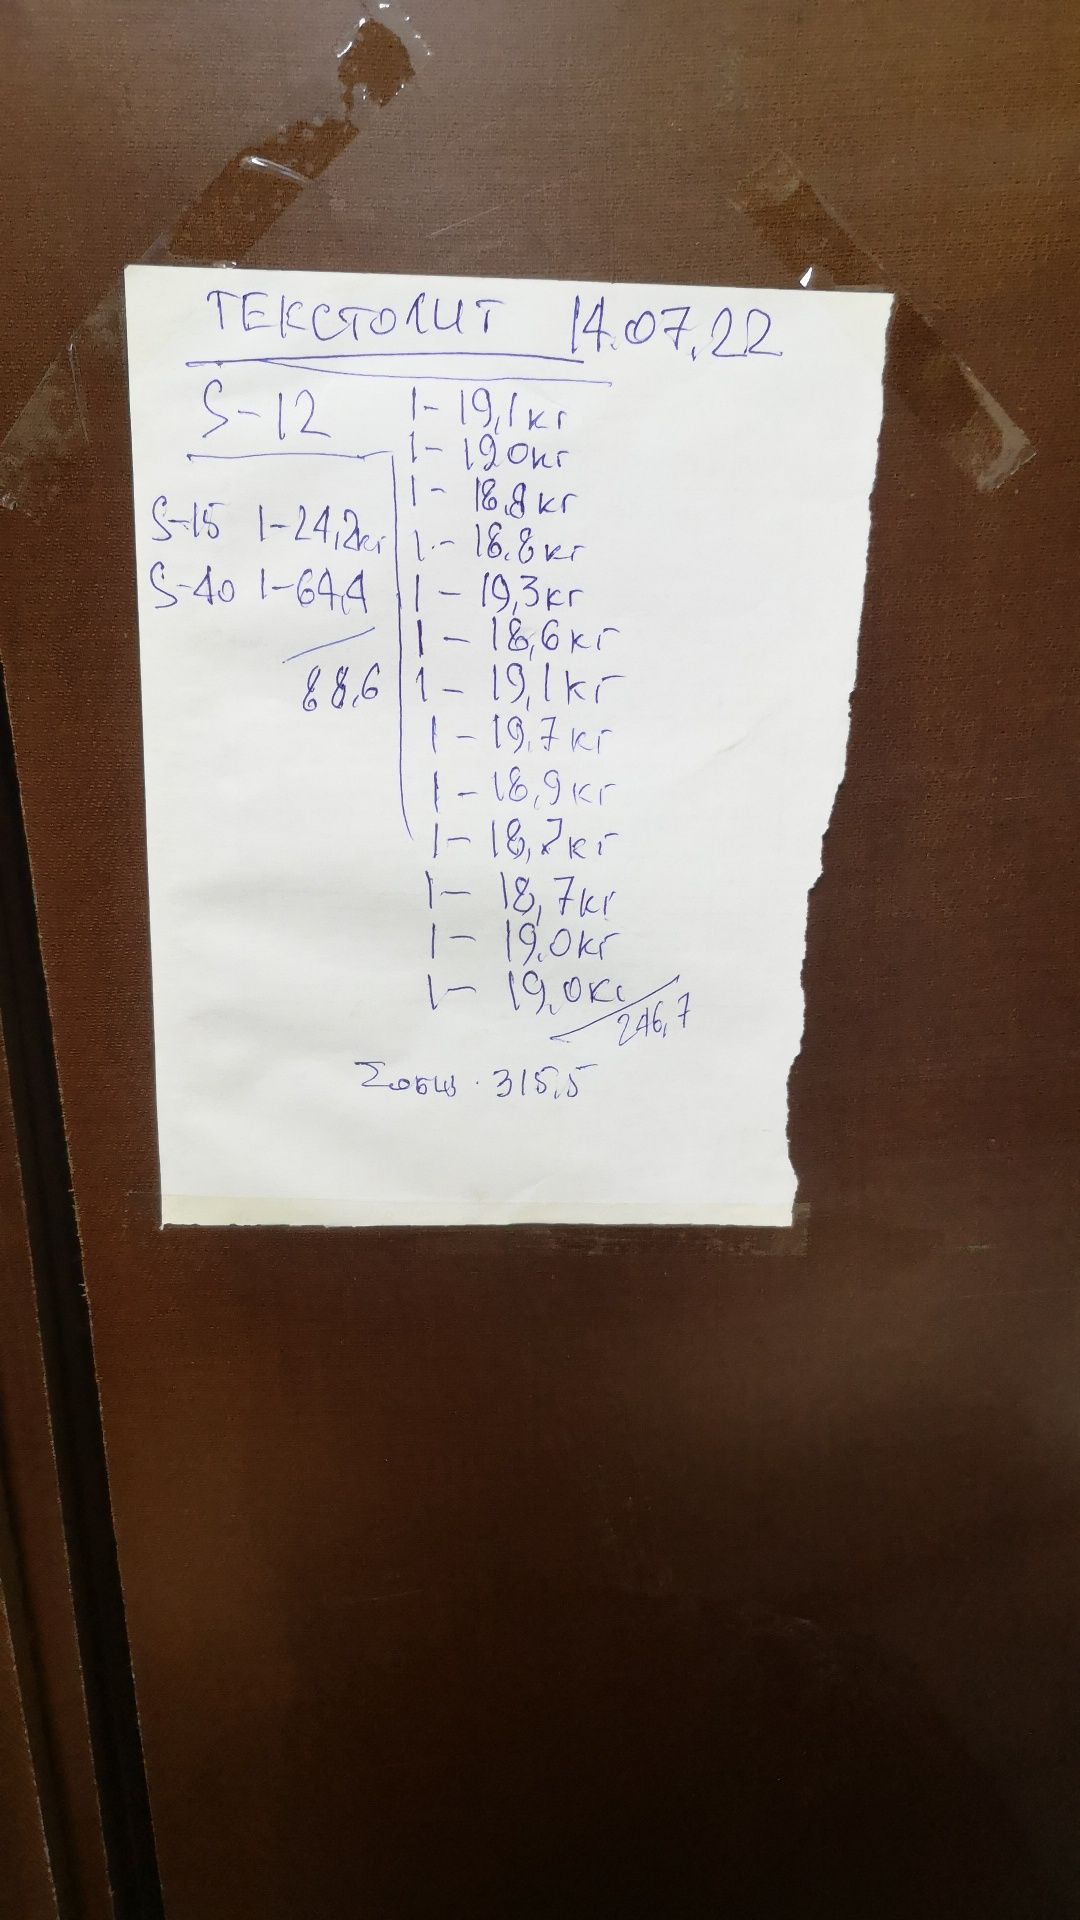 ТЕКСТОЛИТ 14.07.22
S-12
S-15 1-24,2кг
S-40 1-64,4
88,6
1- 19,1кг
1- 19 0кг
1- 18,8кг
1- 18.8кг
1- 19,3кг
1- 18,6кг
1- 19,1кг
1- 19,7кг
1- 18,9кг
1- 18,7кг
1- 18,7кг
1- 19.0кг
1- 19,0кг
246,7
Σобщ. 315,5